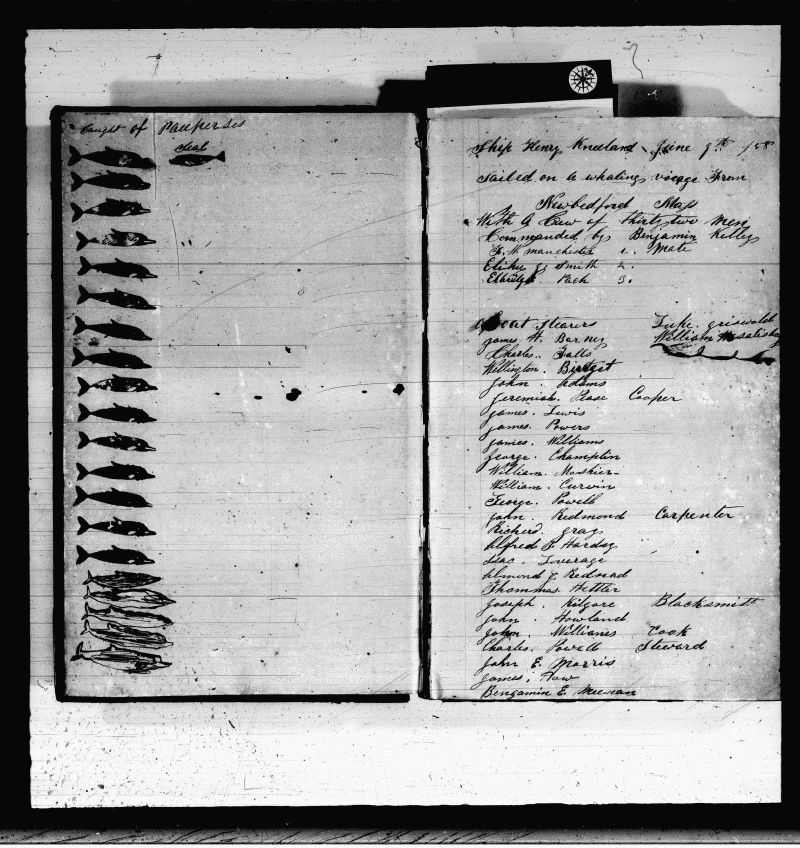 Caught of Pauperses
Seal
Ship Henry Kneeland June 9th 18
Sailed on a whaling voege From
Newbedford Mass
With A Crew of thirty two Men
Commanded by Benjamin Kelley
F. W manchester 1. Mate
Elihu J Smith 2.
Elbridge. Pach 3.
Boat Stearers Luke. griswalds
James H. Barney William salisbury
Charles.. Falls
Wellington.
John. Adams
Jeremiah. Pease Cooper
James. Lewis
James. Powers
James. Williams
George. Champlin
William. Moshier
William. Curvin
George. Powell
John. Redmond Carpenter
Richerd. gray
Alfred P. Hardey
Isac. Loverage
Almond J. Redhead
Thommas Hettler
Joseph. Kilgore Blacksmith
John. Howland
John. Williams Cook
Charles. Powell Steward
John E. Morris
James. How
Bengamin E.